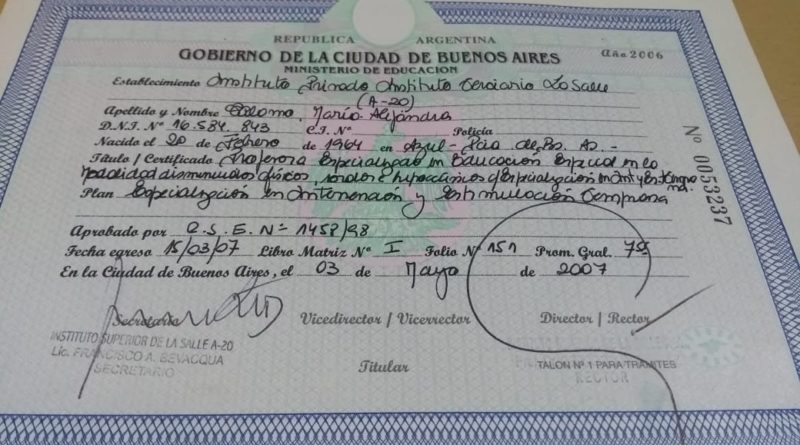 REPUBLICA ARGENTINA
GOBIERNO DE LA CIUDAD DE BUENOS AIRES
Año 2006
MINISTERIO DE EDUCACION
Establecimiento Instituto Privado Instituto Terciario La Salle
(A-20)
Apellido y Nombre María Alejandra
D.N.I. Nº 16.584.843 C.I. Nº Policía
Nacido el 20 de Febrero de 1964 en Azul - Pcia de Bs. As. -
Título / Certificado Profesora Especializada en Educación Especial en la
modalidad disminuidos físicos, sordos e hipoacúsicos
Plan Especialización en Intervención y Estimulación Temprana
Aprobado por R.S.E. Nº 1458/98
Fecha egreso 15/03/07 Libro Matriz Nº I Folio Nº 151 Prom. Gral.
En la Ciudad de Buenos Aires, el 03 de Mayo de 2007
Secretario Vicedirector / Vicerrector Director / Rector
INSTITUTO SUPERIOR DE LA SALLE A-20
Lic. FRANCISCO A. BEVACQUA
SECRETARIO
Titular
TALON Nº 1 PARA TRAMITES
RECTOR
Nº 0053237